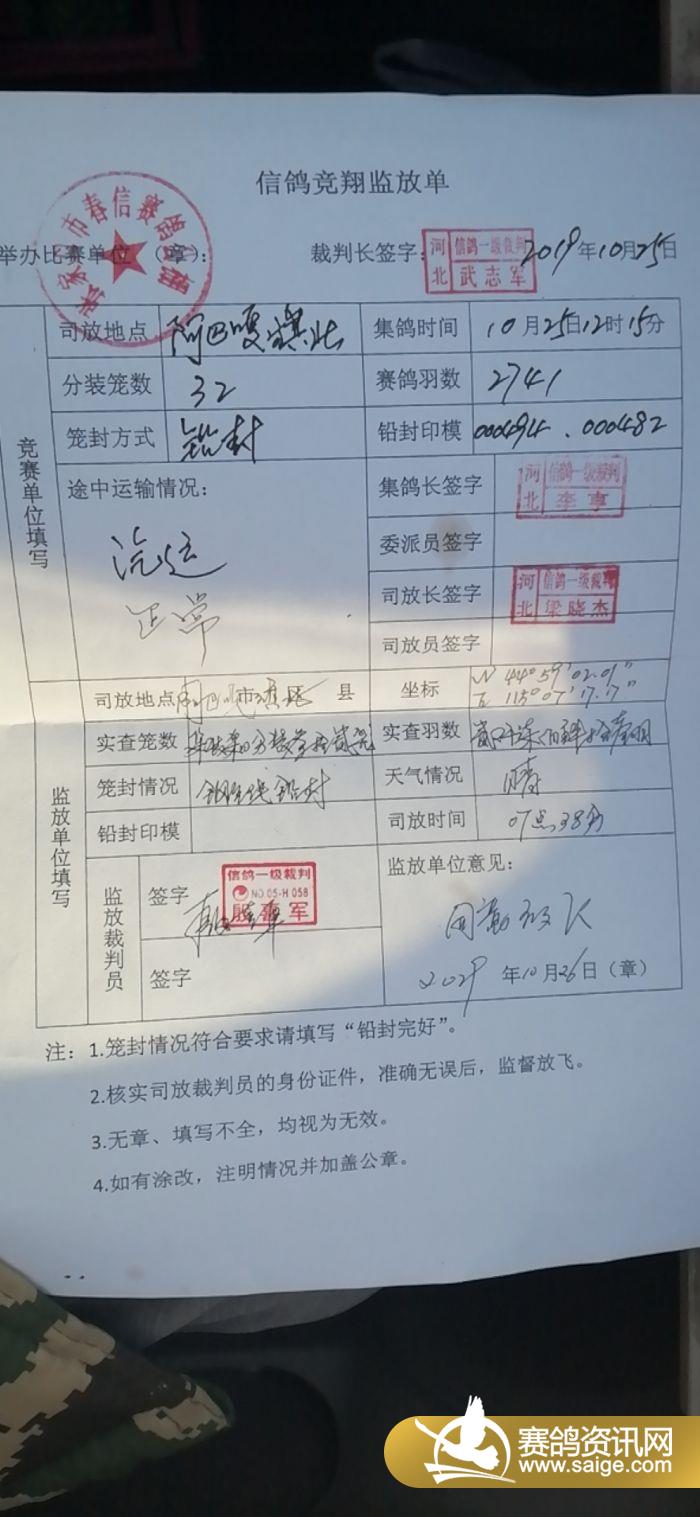 信鸽竞翔监放单
举办比赛单位 (章): 裁判长签字: 河北 信鸽一级裁判 武志军 2019年10月25日
市春信赛鸽
竞赛单位填写
司放地点 阿巴嘎旗北 集鸽时间 10月25日12时15分
分装笼数 32 赛鸽羽数 2741
笼封方式 铅封 铅封印模 000494.000482
途中运输情况: 汽运 正常
集鸽长签字 河北 信鸽一级裁判 李亨
委派员签字
司放长签字 河北 信鸽一级裁判 梁晓杰
司放员签字
监放单位填写
司放地点 市 县 坐标 N 44°59′02.01″
E 115°07′17.17″
实查笼数 实查羽数
笼封情况 铅封 天气情况 晴
铅封印模 司放时间 07点38分
监放裁判员
签字 信鸽一级裁判 NO.05-H 058 军
签字
监放单位意见:
同意放飞
年10月26日(章)
注: 1.笼封情况符合要求请填写“铅封完好”。
2.核实司放裁判员的身份证件，准确无误后，监督放飞。
3.无章、填写不全，均视为无效。
4.如有涂改，注明情况并加盖公章。
赛鸽资讯网
www.saige.com